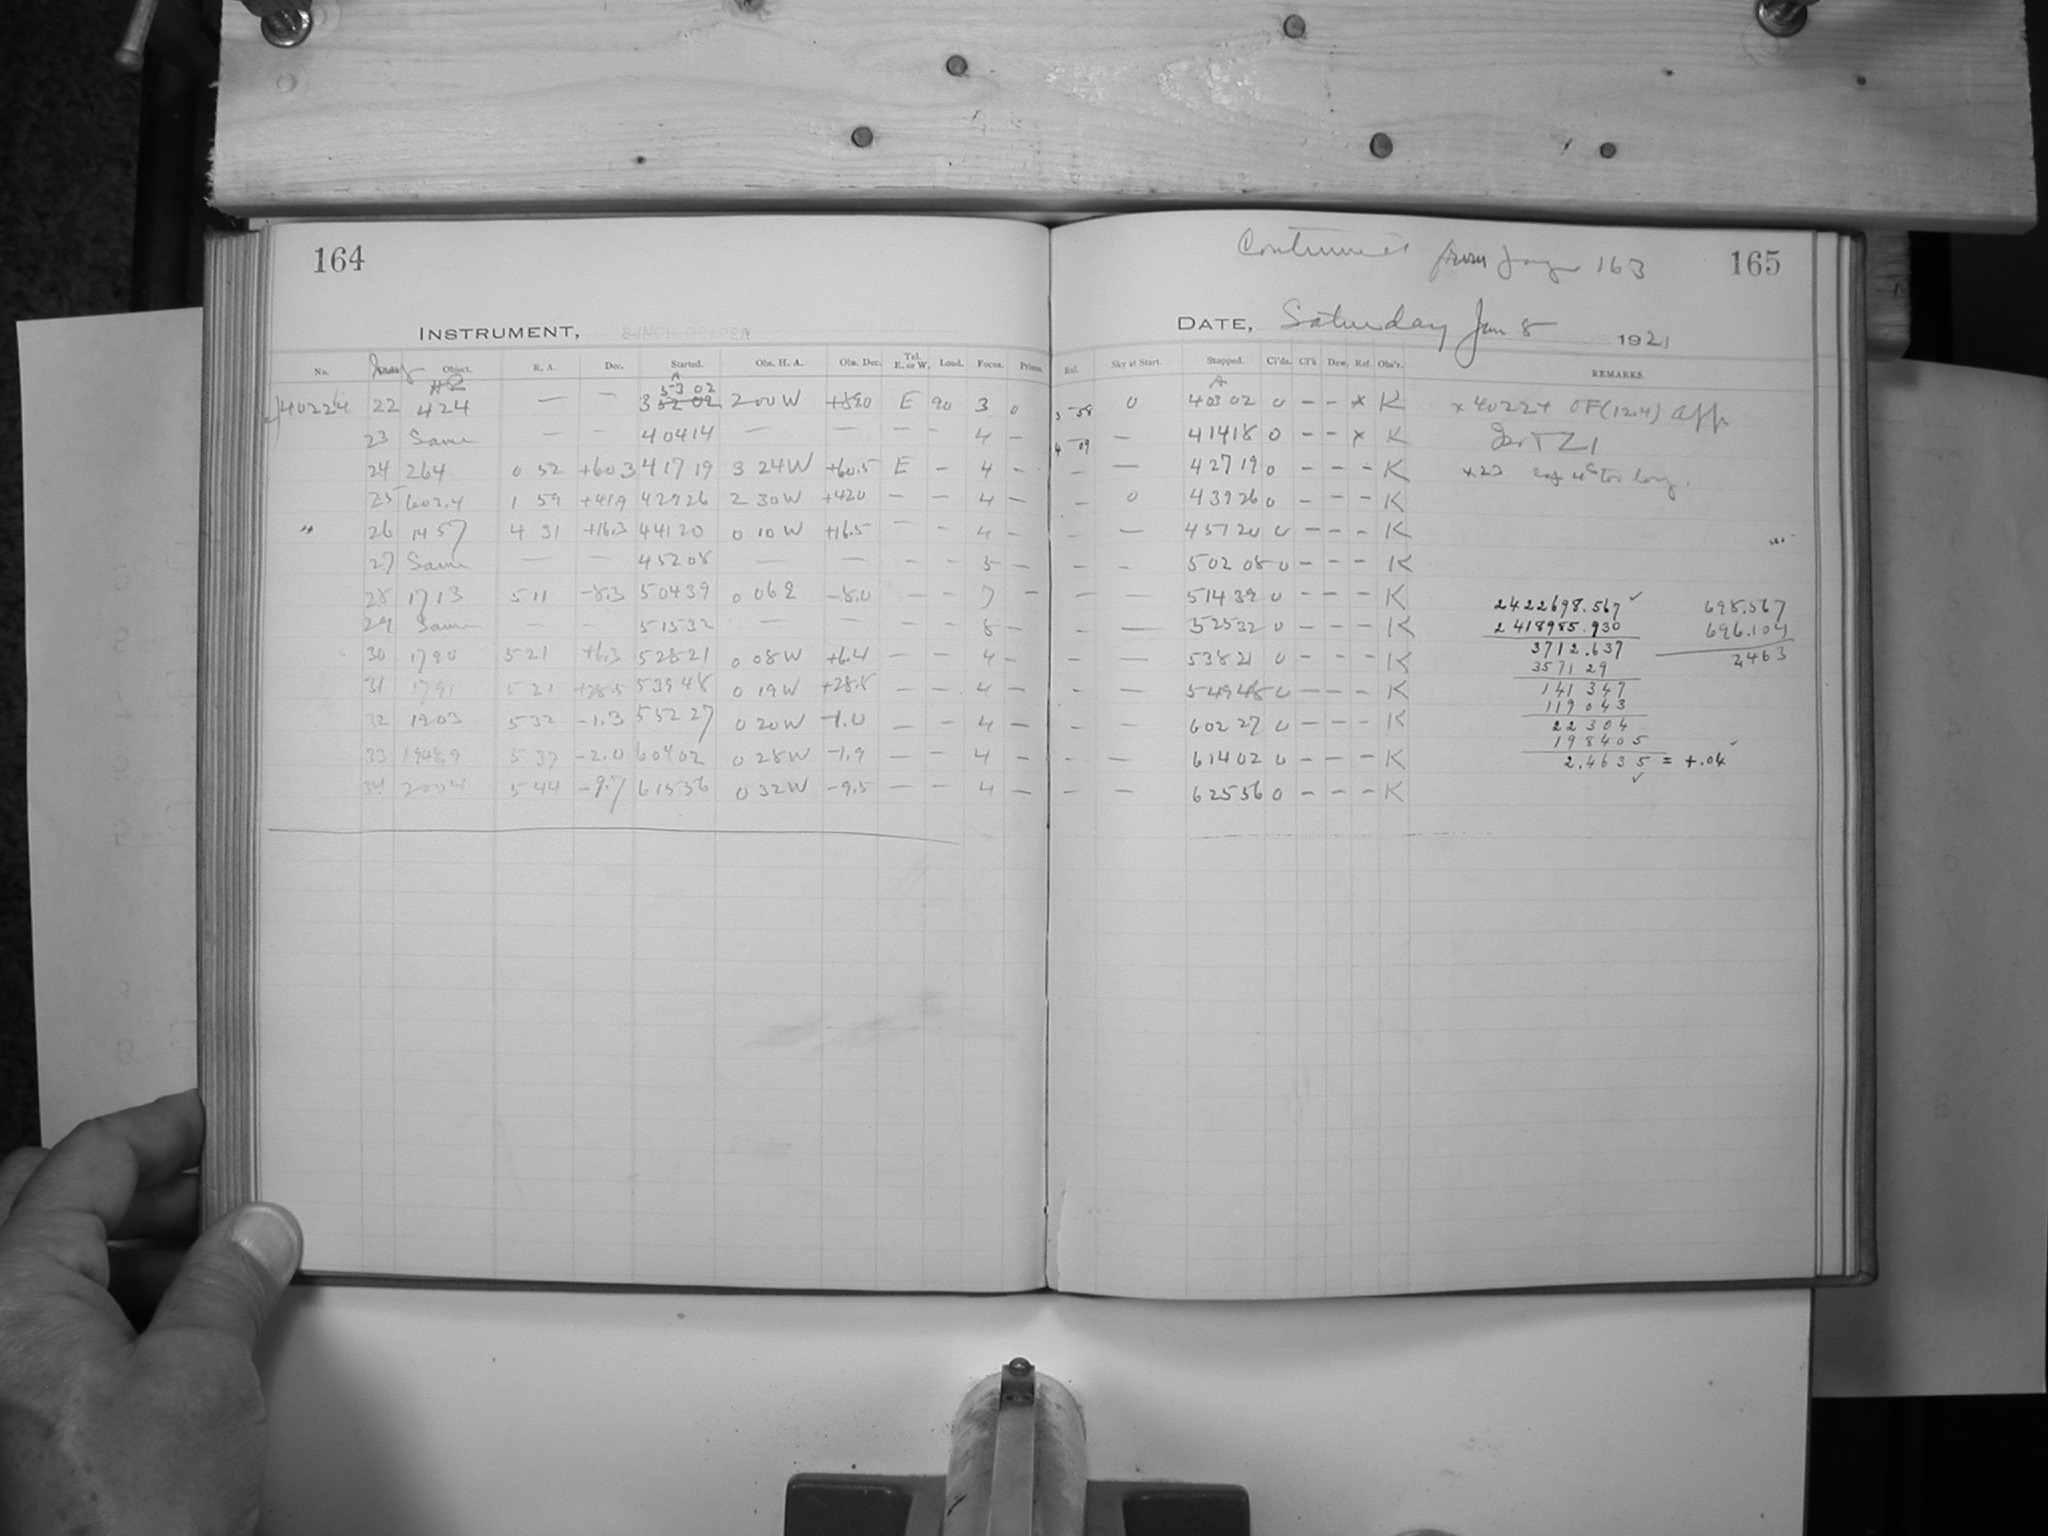 164
INSTRUMENT, 8-INCH DRAPER
No. Object. R. A. Dec. Started. Obs. H. A. Obs. Dec. Tel. E. or W. Load. Focus. Prisms.
40224 22 424 — — 3 53 02 2 00 W +59.0 E 90 3 0
23 Same — — 4 04 14 — — — — 4 —
24 264 0 52 +60.3 4 17 19 3 24 W +60.5 E — 4 —
25 602.4 1 59 +41.9 4 29 26 2 30 W +42.0 — — 4 —
" 26 1457 4 31 +16.3 4 41 20 0 10 W +16.5 — — 4 —
27 Same — — 4 52 08 — — — — 5 —
28 1713 5 11 -8.3 5 04 39 0 06 E -8.0 — — 7 —
29 Same — — 5 15 32 — — — — 8 —
30 1790 5 21 +6.3 5 28 21 0 08 W +6.4 — — 4 —
31 1791 5 21 +28.5 5 39 48 0 19 W +28.8 — — 4 —
32 1903 5 32 -1.3 5 52 27 0 20 W -1.0 — — 4 —
33 1948.9 5 37 -2.0 6 04 02 0 28 W -1.9 — — 4 —
34 2004 5 44 -9.7 6 15 56 0 32 W -9.5 — — 4 —
Continued from page 163 165
DATE, Saturday Jan 8 1921
Sky at Start. Stopped. Cl'ds. Cl'k Dew. Ref. Obs'r. REMARKS.
3-58 0 4 03 02 0 — — x K x 40224 OF(12.4) app
4-09 — 4 14 18 0 — — x K for TZ1
— — 4 27 19 0 — — — K x23 too long.
— 0 4 39 26 0 — — — K
— — 4 51 20 0 — — — K
— — 5 02 08 0 — — — K
— — 5 14 39 0 — — — K
— — 5 25 32 0 — — — K
— — 5 38 21 0 — — — K
— — 5 49 48 0 — — — K
— — 6 02 27 0 — — — K
— — 6 14 02 0 — — — K
— — 6 25 56 0 — — — K
2422698.567 ✓ 698.567
2418985.930 696.104
3712.637 2463
3571 29
141 347
119 043
22 304
19 8405
2.4635 = +.04 ✓
✓